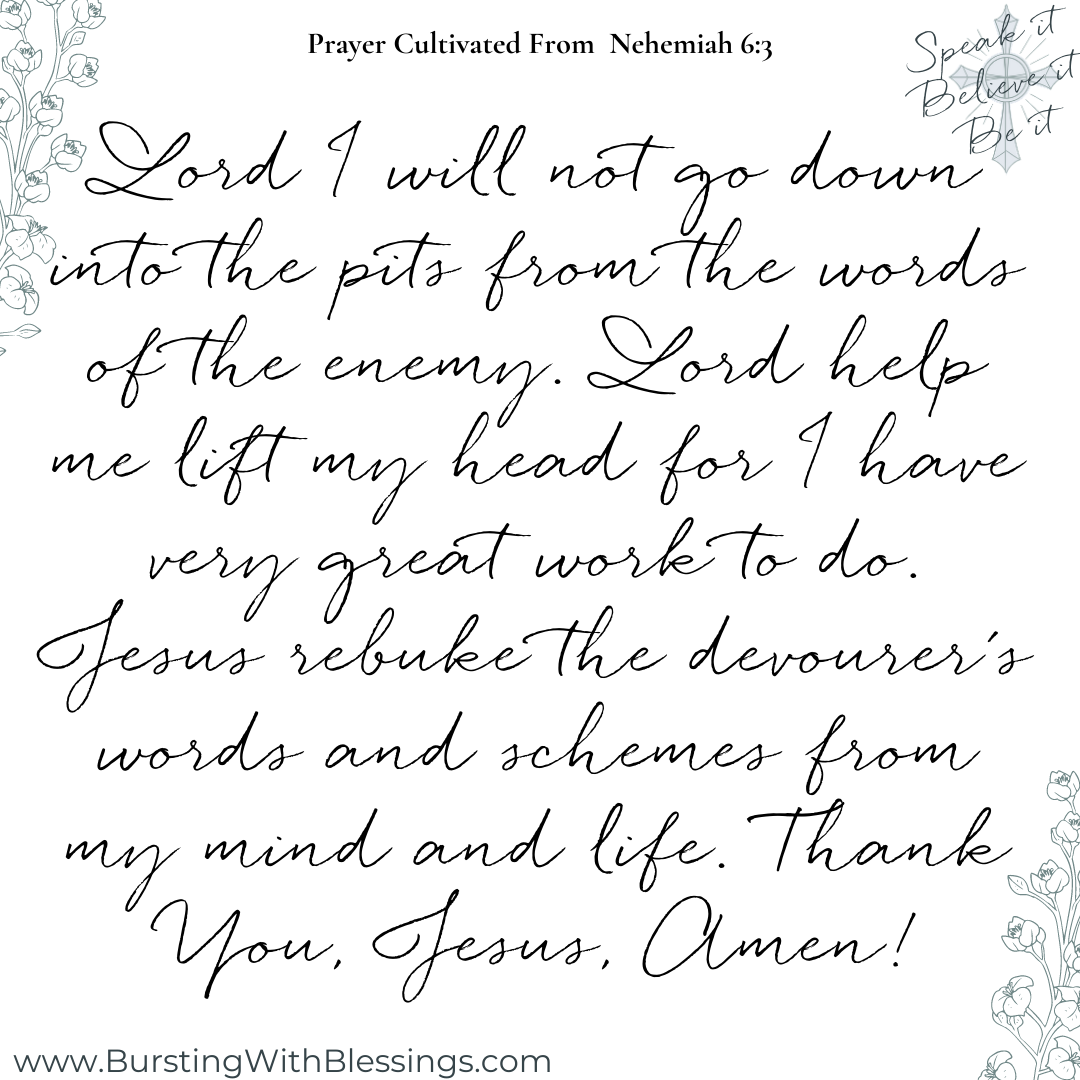 Prayer Cultivated From Nehemiah 6:3
Speak it
Believe it
Be it
Lord I will not go down
into the pits from the words
of the enemy. Lord help
me lift my head for I have
very great work to do.
Jesus rebuke the devourer's
words and schemes from
my mind and life. Thank
You, Jesus, Amen!
www.BurstingWithBlessings.com